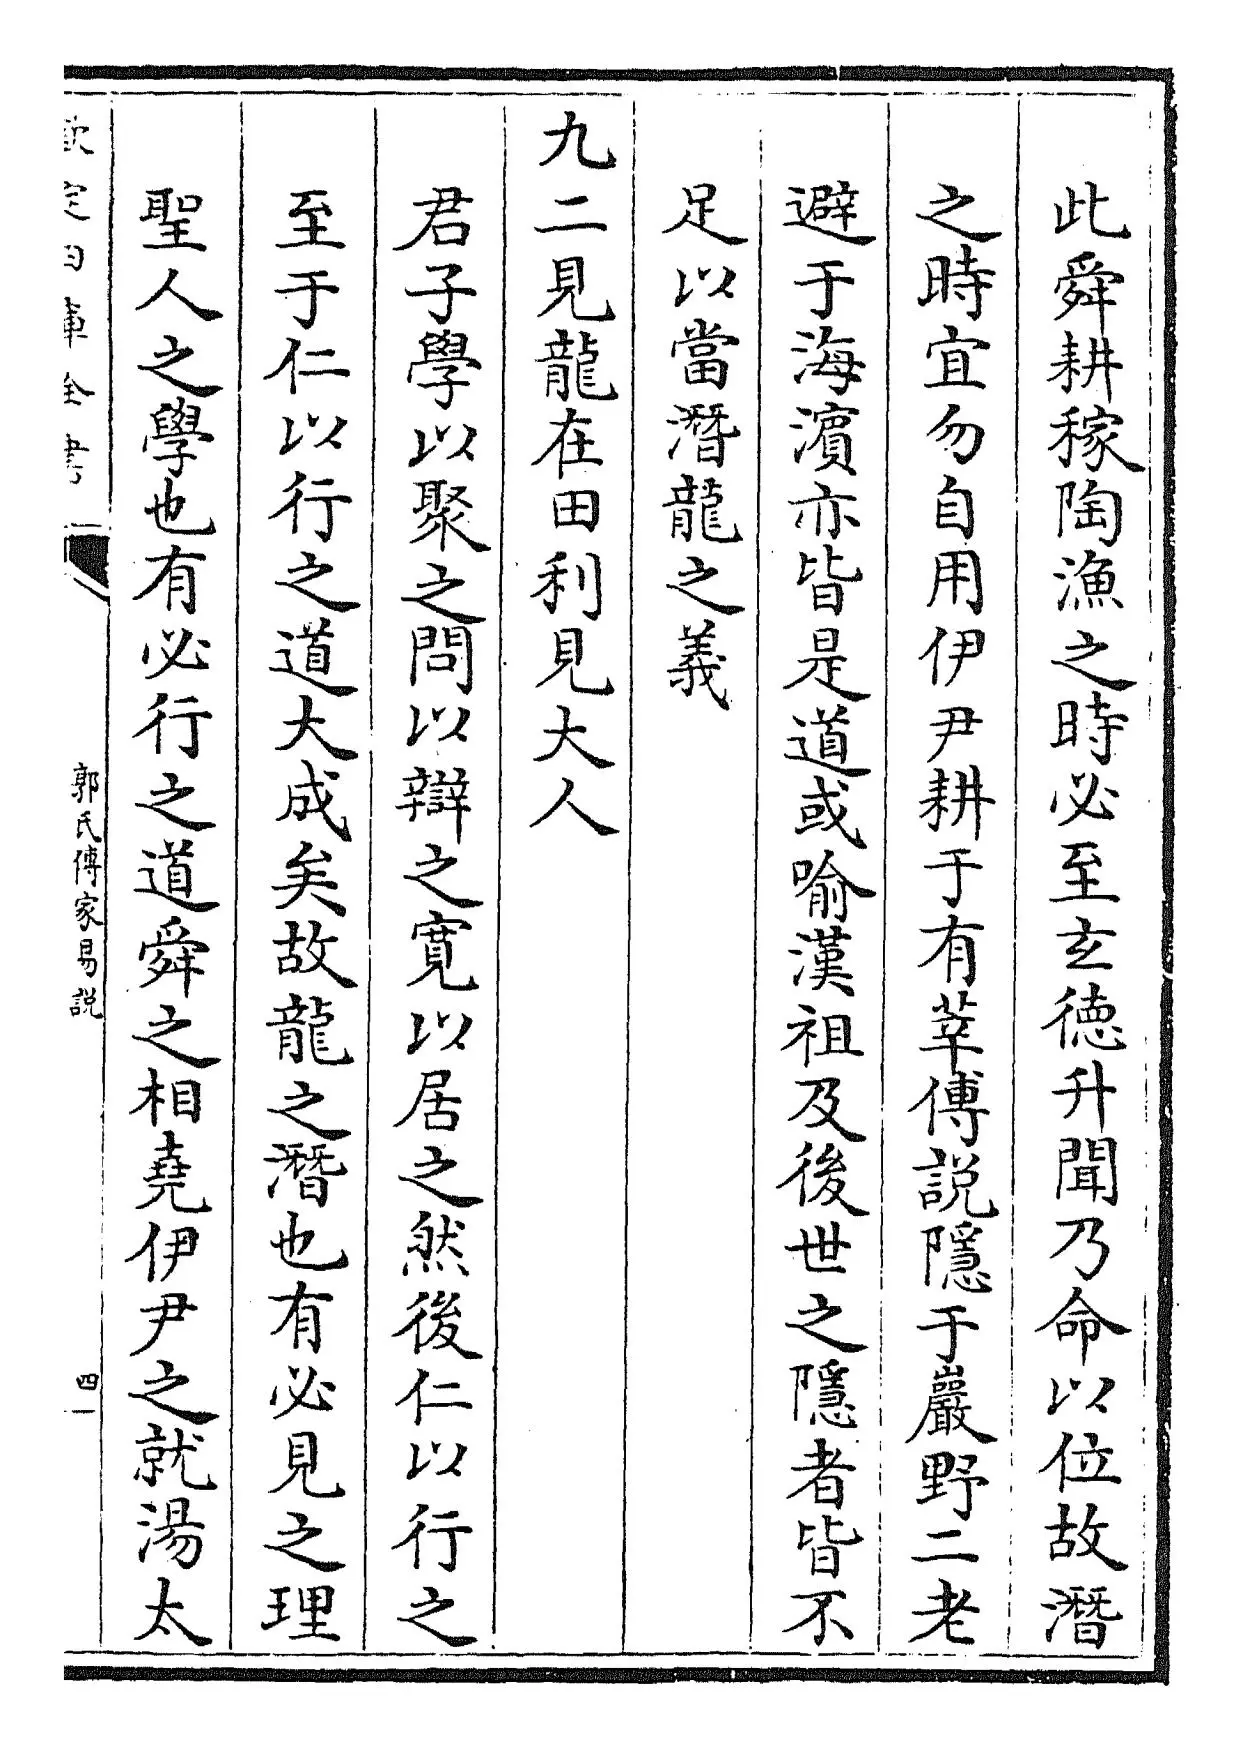 此舜耕稼陶漁之時必至玄徳升聞乃命以位故潛
之時宜勿自用伊尹耕于有莘傅説隱于巖野二老
避于海濵亦皆是道或喻漢祖及後世之隱者皆不
足以當潛龍之義
九二見龍在田利見大人
君子學以聚之問以辯之寛以居之然後仁以行之
至于仁以行之道大成矣故龍之潛也有必見之理
聖人之學也有必行之道舜之相堯伊尹之就湯太
欽定四庫全書
郭氏傳家易説
四